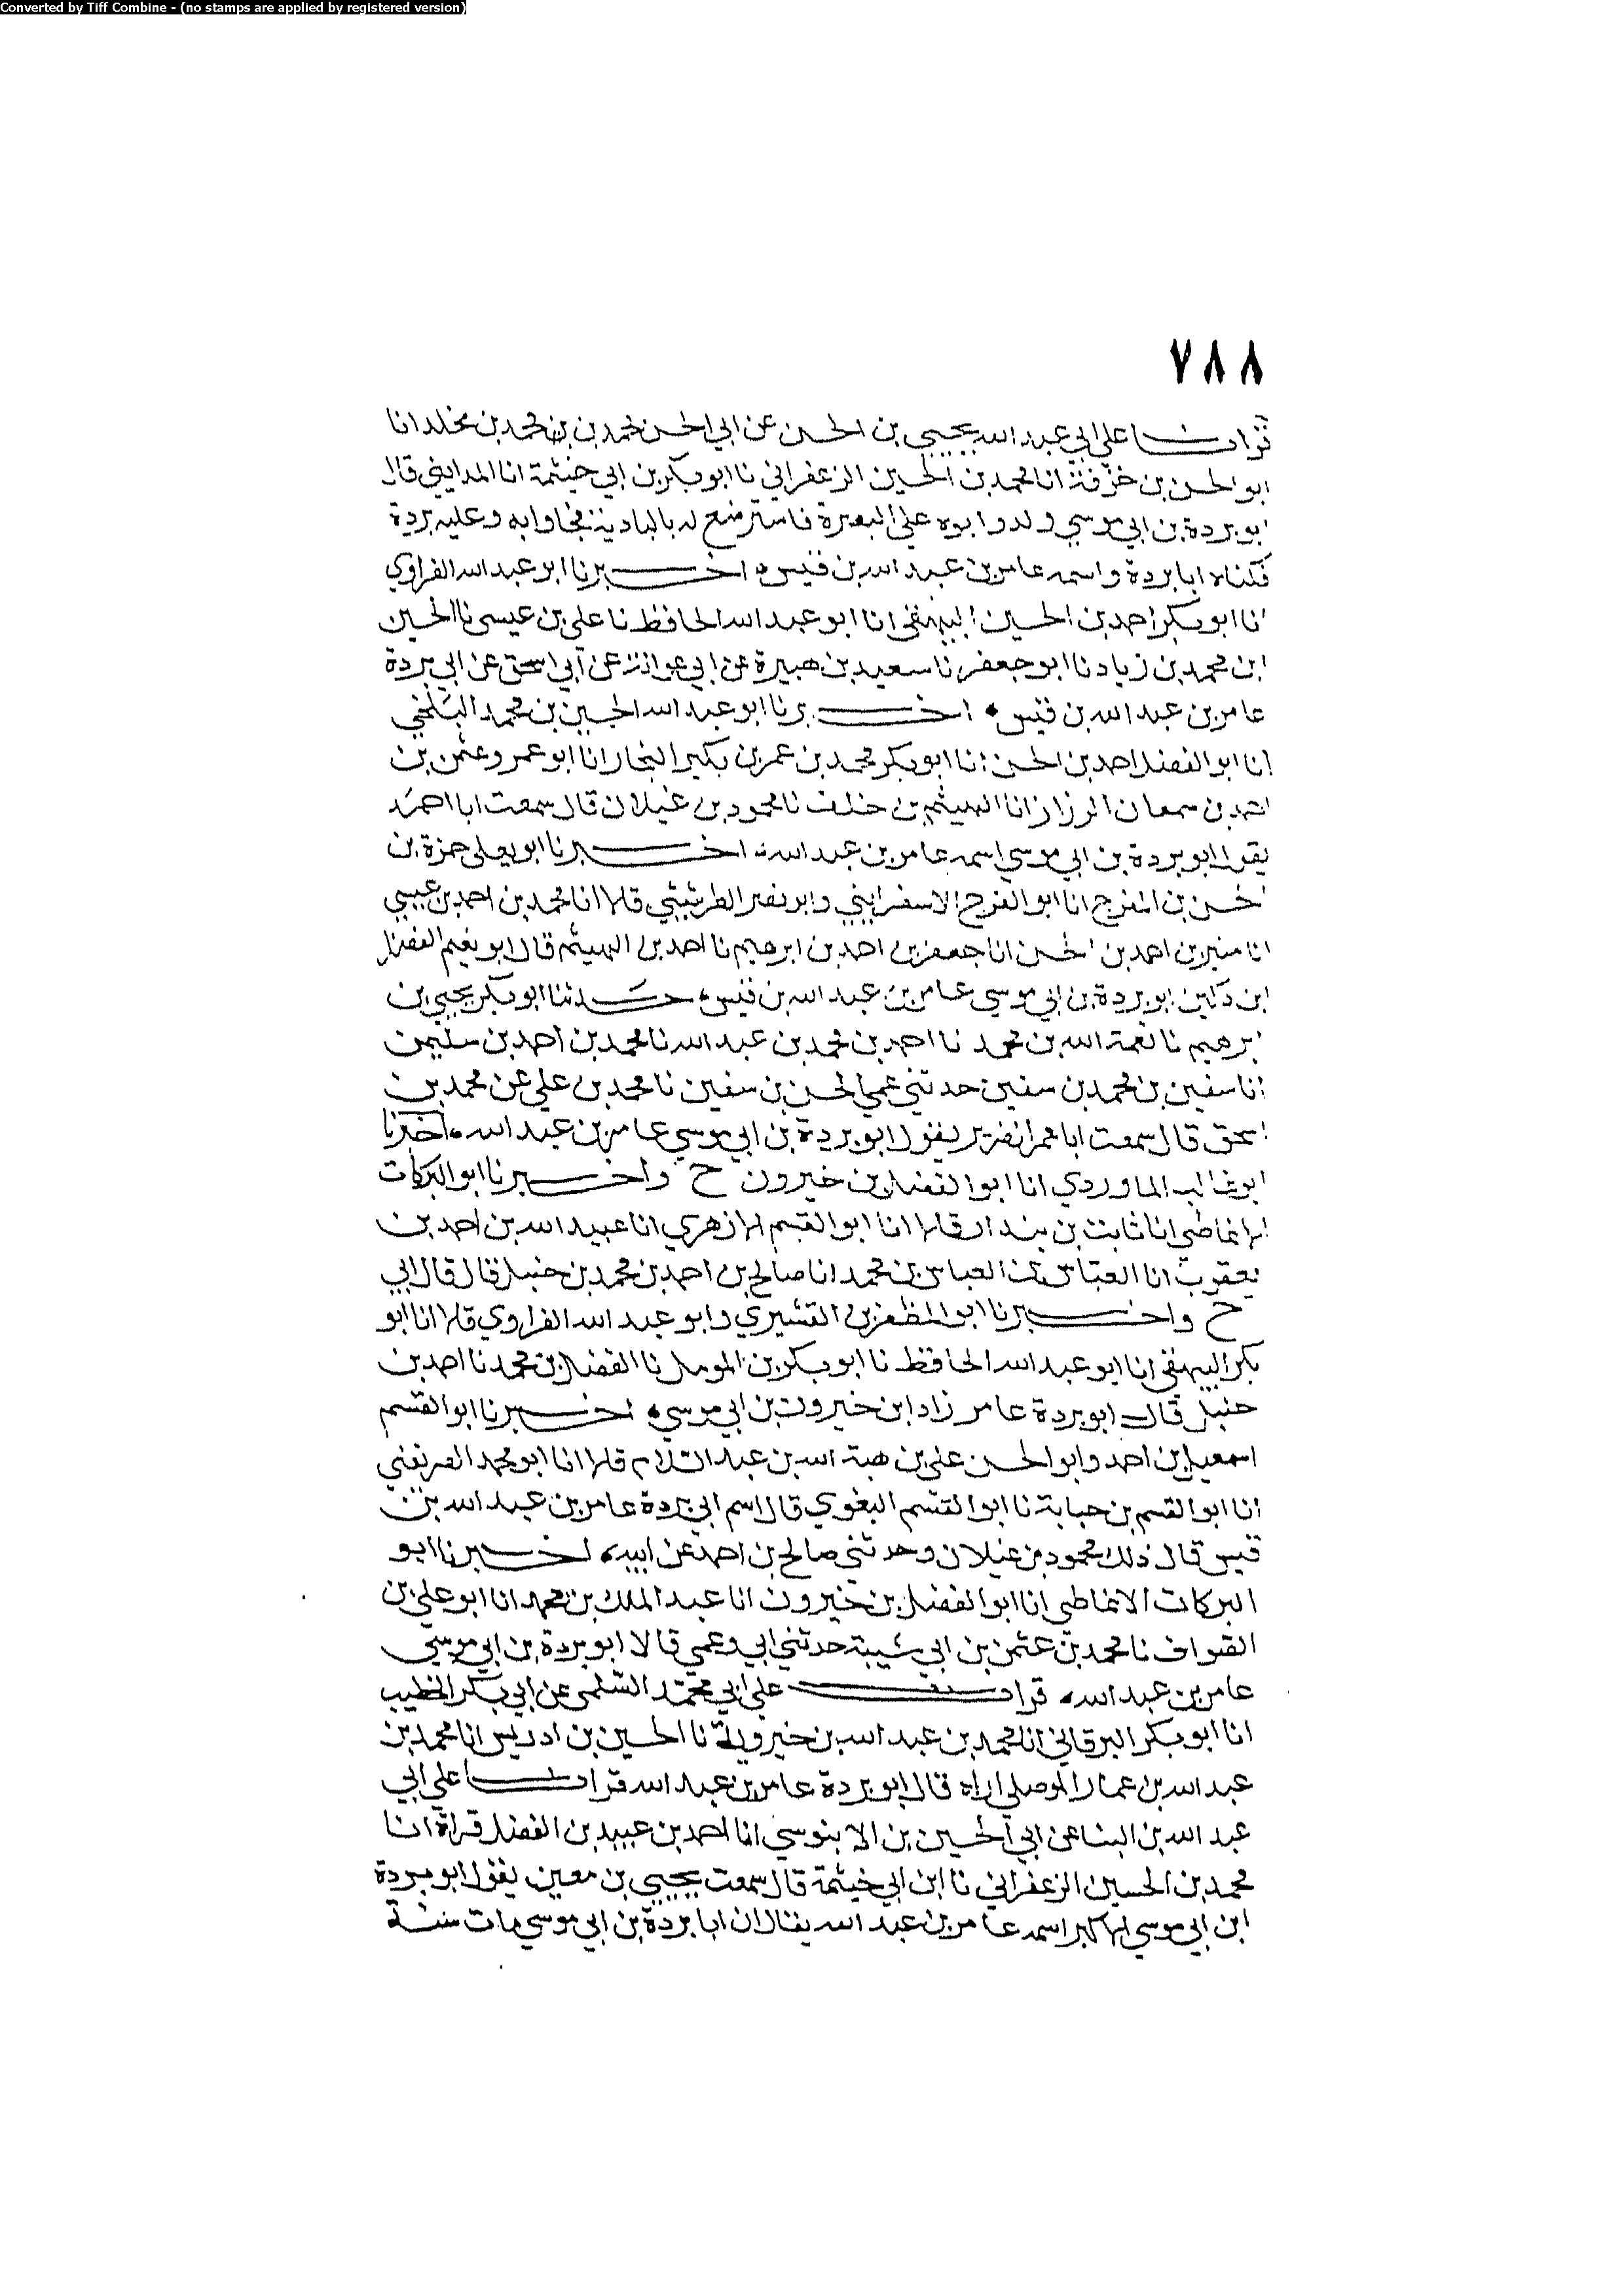 Converted by Tiff Combine - (no stamps are applied by registered version)
٧٨٨
قرات على ابي عبد الله يحيى بن الحسن عن ابي الحسن محمد بن محمد بن مخلد انا
ابو الحسن بن خزفة انا محمد بن الحسين الزعفراني نا ابو بكر بن ابي خيثمة انا المدايني قال
ابو بردة بن ابي موسي ولد وابوه علي البصرة فاسترضع له بالبادية فجاوا به وعليه بردة
فكناه ابا بردة واسمه عامر بن عبد الله بن قيس اخبرنا ابو عبد الله الفراوي
انا ابو بكر احمد بن الحسين البيهقي انا ابو عبد الله الحافظ نا علي بن عيسى نا الحسين
ابن محمد بن زياد نا ابو جعفر نا سعيد بن هبيرة عن ابي عوانة عن ابي اسحق عن ابي بردة
عامر بن عبد الله بن قيس اخبرنا ابو عبد الله الحسين بن محمد البلخي
انا ابو الفضل احمد بن الحسن انا ابو بكر محمد بن عمر بن بكير النجار انا ابو عمرو عثمن بن
احمد بن سمعان الرزاز انا الهيثم بن خلف نا محمود بن غيلان قال سمعت ابا احمد
يقول ابو بردة بن ابي موسي اسمه عامر بن عبد الله اخبرنا ابو يعلى حمزة بن
الحسن بن المفرج انا ابو الفرج الاسفرايني وابو نصر الطريثيثي قالا انا محمد بن احمد بن عيسي
انا منير بن احمد بن الحسن انا جعفر بن احمد بن ابرهيم نا احمد بن الهيثم قال ابو نعيم الفضل
ابن دكين ابو بردة بن ابي موسي عامر بن عبد الله بن قيس حدثنا ابو بكر يحيي بن
ابرهيم نا نعمة الله بن محمد نا احمد بن محمد بن عبد الله نا محمد بن احمد بن سليمن
انا سفين بن محمد بن سفين حدثني عمي الحسن بن سفين نا محمد بن علي عن محمد بن
اسحق قال سمعت ابا عمر الضرير يقول ابو بردة بن ابي موسي عامر بن عبد الله اخبرنا
ابو غالب الماوردي انا ابو الفضل بن خيرون ح واخبرنا ابو البركات
الانماطي انا ثابت بن بندار قالا انا ابو القسم الازهري انا عبيد الله بن احمد بن
يعقوب انا العباس بن العباس بن محمد انا صالح بن احمد بن محمد بن حنبل قال قال ابي
ح واخبرنا ابو المظفر بن القشيري وابو عبد الله الفراوي قالا انا ابو
بكر البيهقي انا ابو عبد الله الحافظ نا ابو بكر بن المومل نا الفضل بن محمد نا احمد بن
حنبل قال ابو بردة عامر زاد ابن خيرون بن ابي موسي اخبرنا ابو القسم
اسمعيل بن احمد وابو الحسن علي بن هبة الله بن عبد السلام قالا انا ابو محمد الصريفيني
انا ابو القسم بن حبابة نا ابو القسم البغوي قال اسم ابي بردة عامر بن عبد الله بن
قيس قال ذلك محمود بن غيلان وحدثني صالح بن احمد عن ابيه اخبرنا ابو
البركات الانماطي انا ابو الفضل بن خيرون انا عبد الملك بن محمد انا ابو علي بن
الصواف نا محمد بن عثمن بن ابي شيبة حدثني ابي وعمي قالا ابو بردة بن ابي موسي
عامر بن عبد الله قرات علي ابي محمد السلمي عن ابي بكر الخطيب
انا ابو بكر البرقاني انا محمد بن عبد الله بن خميرويه نا الحسين بن ادريس انا محمد بن
عبد الله بن عمار الموصلي اراه قال ابو بردة عامر بن عبد الله قرات علي ابي
عبد الله بن البنا عن ابي الحسين بن الابنوسي انا احمد بن عبيد بن الفضل قراة انا
محمد بن الحسين الزعفراني نا ابن ابي خيثمة قال سمعت يحيي بن معين يقول ابو بردة
ابن ابي موسي الاكبر اسمه عامر بن عبد الله يقال ان ابا بردة بن ابي موسي مات سنة